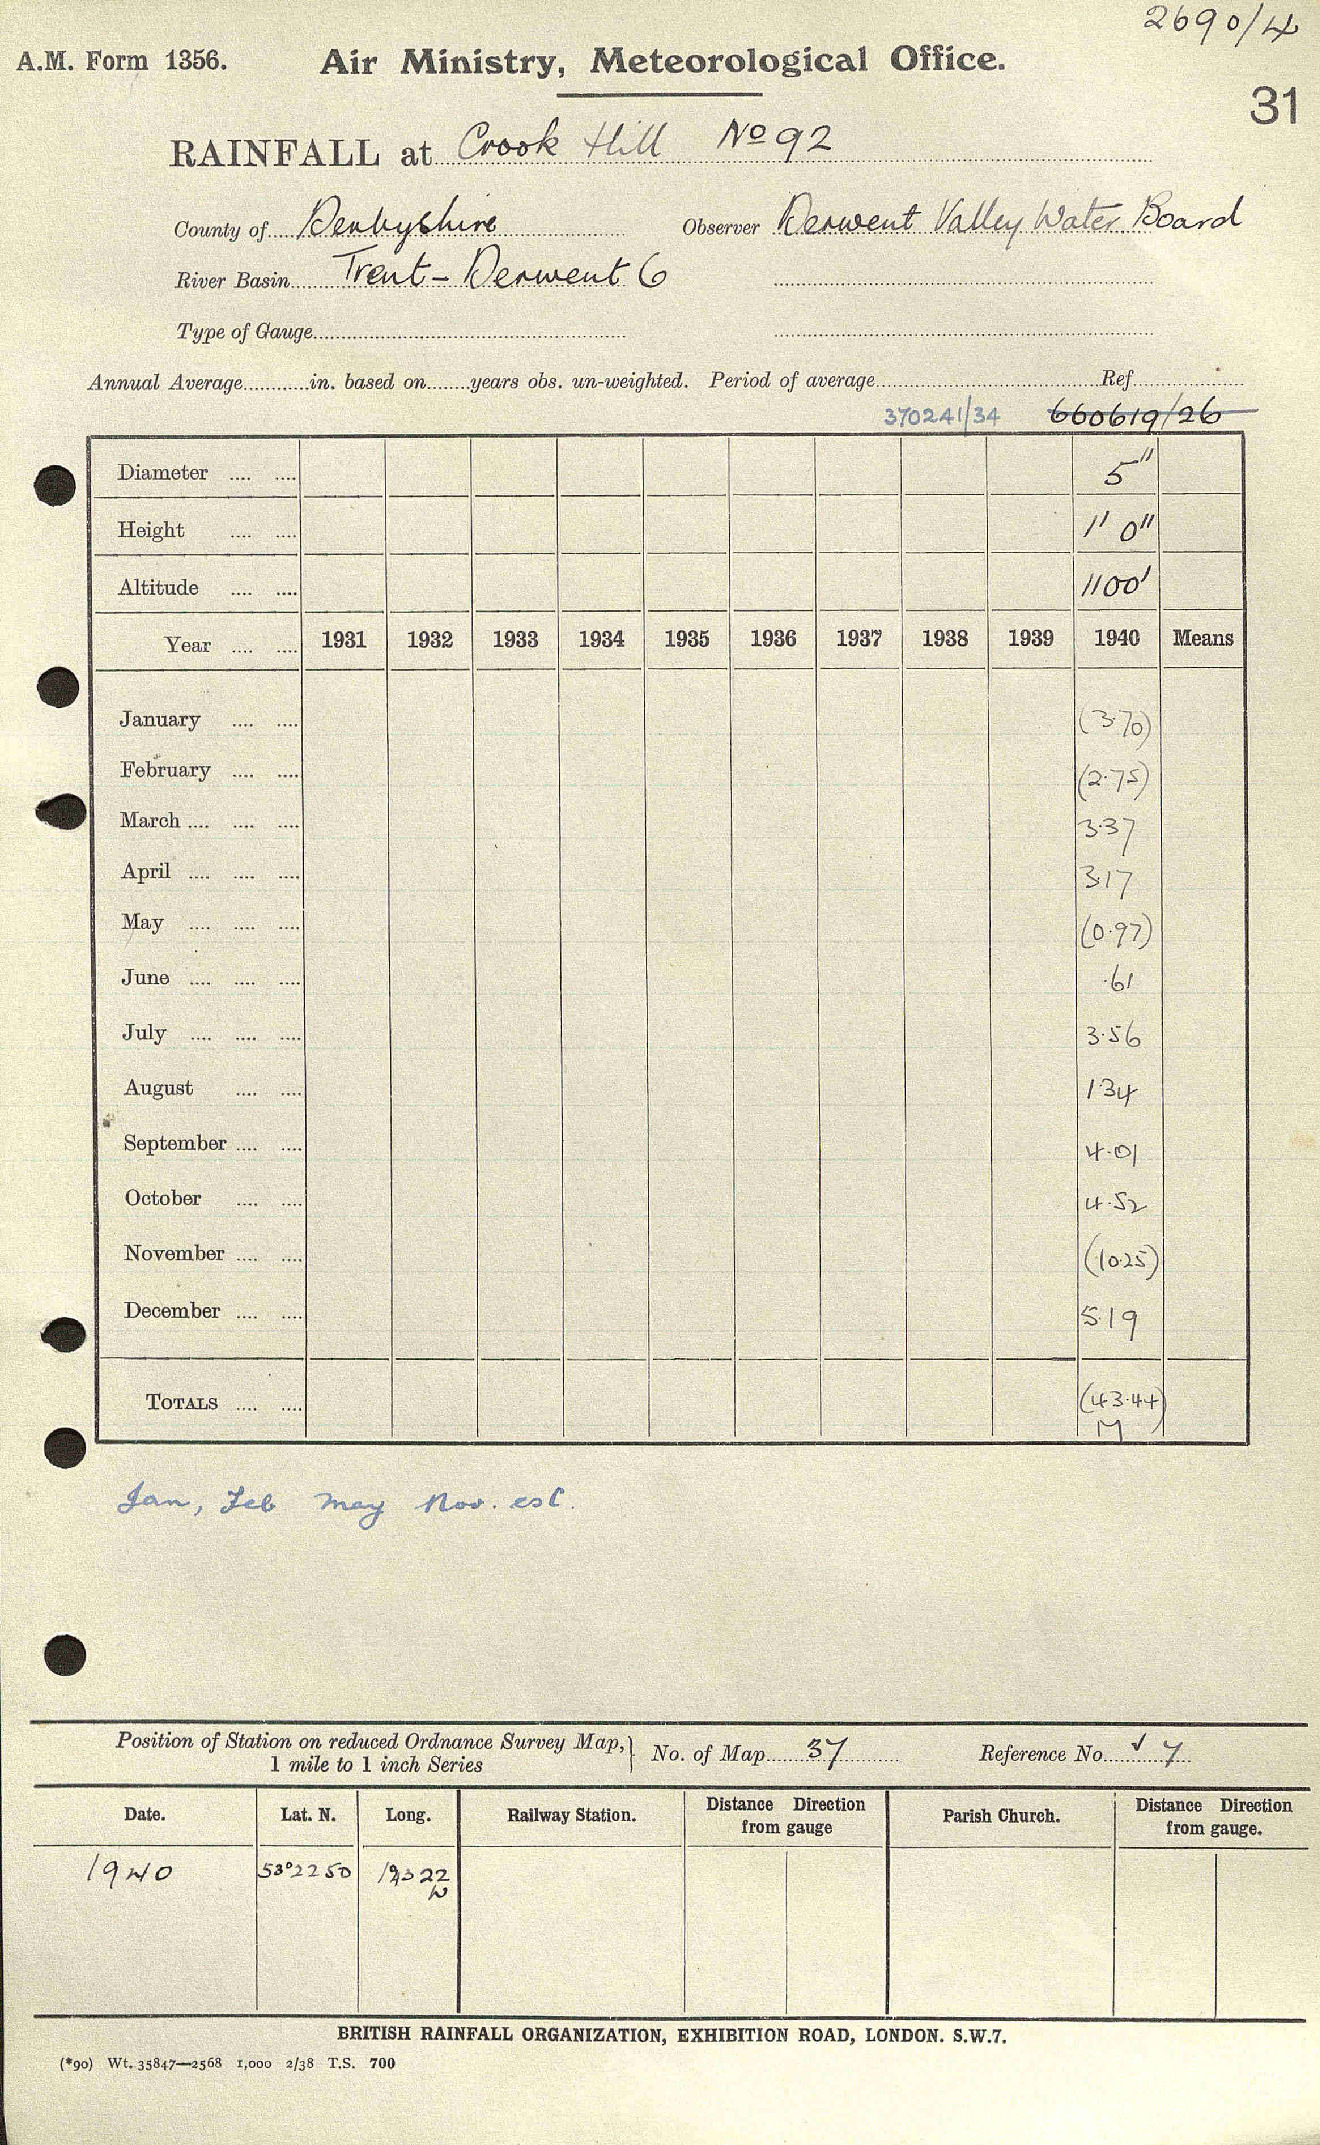 2690/4
A.M. Form 1356. Air Ministry, Meteorological Office.
31
RAINFALL at Crook Hill Nº 92
County of Derbyshire Observer Derwent Valley Water Board
River Basin Trent - Derwent 6
Type of Gauge
Annual Average in. based on years obs. un-weighted. Period of average Ref
370241/34 660619/26
Diameter 5"
Height 1' 0"
Altitude 1100'
Year 1931 1932 1933 1934 1935 1936 1937 1938 1939 1940 Means
January (3.70)
February (2.75)
March 3.37
April 3.17
May (0.97)
June .61
July 3.56
August 1.34
September 4.01
October 4.52
November (10.25)
December 5.19
TOTALS (43.44)
M
Jan, Feb May Nov. est.
Position of Station on reduced Ordnance Survey Map, 1 mile to 1 inch Series No. of Map 37 Reference No. 7
Date. Lat. N. Long. Railway Station. Distance Direction from gauge Parish Church. Distance Direction from gauge.
1940 53°22 50
W
BRITISH RAINFALL ORGANIZATION, EXHIBITION ROAD, LONDON. S.W.7.
(*90) Wt. 35847—2568 1,000 2/38 T.S. 700